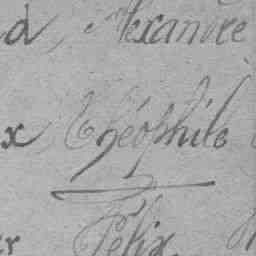 d, Alexandre
x Théophile
Félix